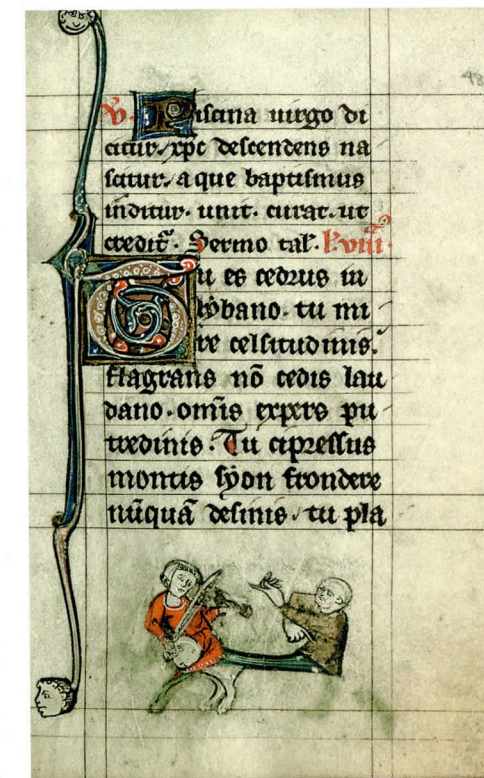 48
V. Piscina uirgo di
citur. xpc descendens na
scitur. aque baptismus
inditur. unit. curat. ut
credit̄. Sermo tal̄. lviii.
Tu es cedrus in
lybano. tu mi
re celsitudinis.
flagrans nō cedis lau
dano. om̄is expers pu
tredinis. Tu cipressus
montis syon frondere
nūquā desinis. tu pla